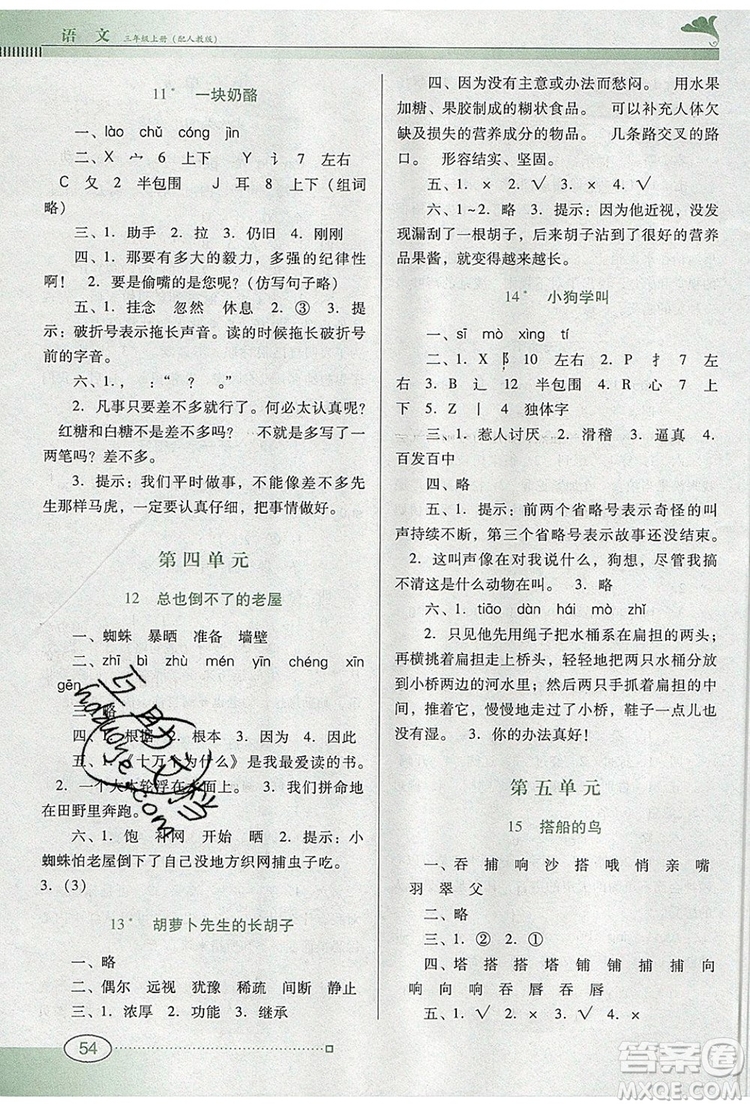 语 文 三年级上册（配人教版）
11* 一块奶酪
一、lào chǔ cóng jìn
二、X 宀 6 上下 Y 讠 7 左右
C 夂 2 半包围 J 耳 8 上下（组词
略）
三、1. 助手 2. 拉 3. 仍旧 4. 刚刚
四、1. 那要有多大的毅力，多强的纪律性
啊！ 2. 要是偷嘴的是您呢？（仿写句子略）
五、1. 挂念 忽然 休息 2. ③ 3. 提
示：破折号表示拖长声音。读的时候拖长破折号
前的字音。
六、1. ， ：“ ？ 。”
2. 凡事只要差不多就好了。何必太认真呢？
红糖和白糖不是差不多吗？ 不就是多写了一
两笔吗？差不多。
3. 提示：我们平时做事，不能像差不多先
生那样马虎，一定要认真仔细，把事情做好。
第四单元
12 总也倒不了的老屋
一、蜘蛛 暴晒 准备 墙壁
二、zhī bì zhù mén yīn chéng xīn
gēn
三、略
四、1. 根据 2. 根本 3. 因为 4. 因此
五、1.《十万个为什么》是我最爱读的书。
2. 一个大木轮浮在水面上。 3. 我们拼命地
在田野里奔跑。
六、1. 饱 补网 开始 晒 2. 提示：小
蜘蛛怕老屋倒下了自己没地方织网捕虫子吃。
3.（3）
13* 胡萝卜先生的长胡子
一、略
二、偶尔 远视 犹豫 稀疏 间断 静止
三、1. 浓厚 2. 功能 3. 继承
54
四、因为没有主意或办法而愁闷。 用水果
加糖、果胶制成的糊状食品。 可以补充人体欠
缺及损失的营养成分的物品。 几条路交叉的路
口。 形容结实、坚固。
五、1. × 2. √ 3. √ 4. ×
六、1~2. 略 3. 提示：因为他近视，没发
现漏刮了一根胡子，后来胡子沾到了他的营养
品果酱，就变得越来越长。
14* 小狗学叫
一、sī mò xìng tí
二、1. X 阝 10 左右 2. P 扌 7 左
右 3. B 辶 12 半包围 4. R 心 7 上
下 5. Z 丨 4 独体字
三、1. 惹人讨厌 2. 滑稽 3. 逼真 4.
百发百中
四、略
五、1. 提示：前两个省略号表示奇怪的叫
声持续不断，第三个省略号表示故事还没结束。
2. 这叫声像在对我说什么，狗想，尽管我搞
不清这是什么动物在叫。 3. 略
六、1. tiāo dàn hái mò zhǐ
2. 只见他先用绳子把水桶系在扁担的两头；
再横挑着扁担上桥头，轻轻地把两只水桶分放
在小桥两边的河水里；然后把扁担向前面平行
移动，推着它，慢慢地走过了小桥，鞋子一点儿也
没有湿。 3. 你的办法真好！
第五单元
15 搭船的鸟
一、吞 捕 响 沙 搭 哦 悄 亲 嘴
羽 翠 父
二、略
三、1. ② 2. ①
四、塔 搭 搭 塔 铺 铺 捕 捕 向
响 向 响 吞 唇 吞 唇
五、1. √ 2. √ 3. × 4. ×
互助文档
huozhuwenge.com
答案圈
MXQE.COM